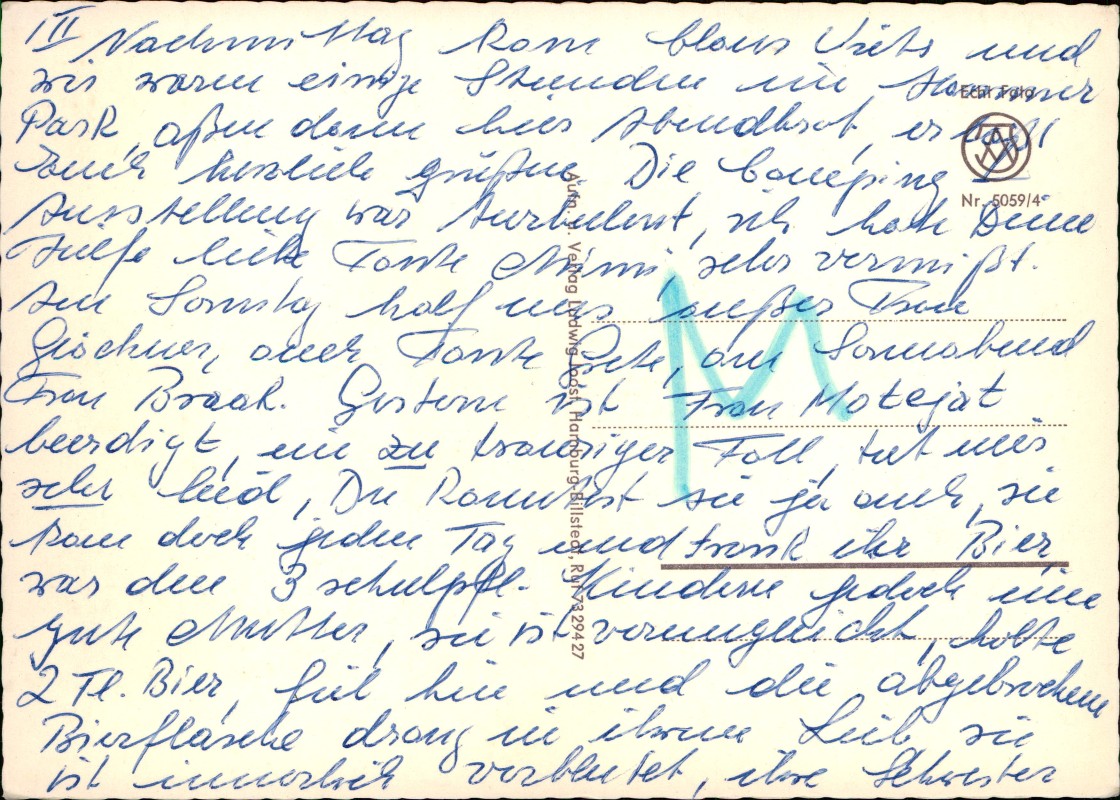 III Nachmittag kam Claus Viets und
wir waren einige Stunden im Hammer
Park, aßen dann hier Abendbrot, er läßt
Euch herzlich grüßen. Die Camping
Ausstellung war turbulent, ich hab Deine
Hilfe liebe Tante Mimi, sehr vermißt.
Am Sonntag half uns außer Frau
auch Tante Grete, am Sonnabend
Frau Braak. Gestern ist Frau Motejat
beerdigt, ein zu trauriger Fall, tut mir
sehr leid, Du kanntest sie ja auch, sie
kam doch jeden Tag und trank ihr Bier,
war den 3 schulpfl. Kindern jedoch eine
gute Mutter, sie ist verunglückt, holte
2 Fl. Bier, fiel hin und die abgebrochene
Bierflasche drang in ihren Leib, sie
ist innerlich verblutet, ihre Schwester
Echt Foto
Nr. 5059/4
Aufn. u. Verlag Ludwig Joost, Hamburg-Billstedt, Ruf 7329427
M